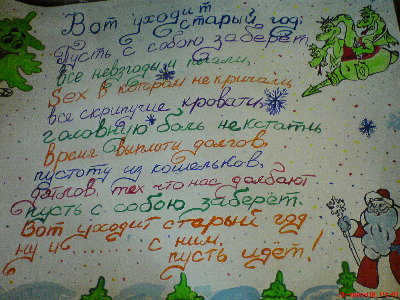 Вот уходит
старый год:
Пусть с собою заберёт
все невзгоды и печали,
Sex в котором не кричали,
все скрипучие кровати,
головную боль не кстати,
время выплаты долгов,
пустоту из кошельков.
тех что нас долбают
пусть с собою заберёт.
Вот уходит старый год
ну и с.... с ним.
пусть идёт!